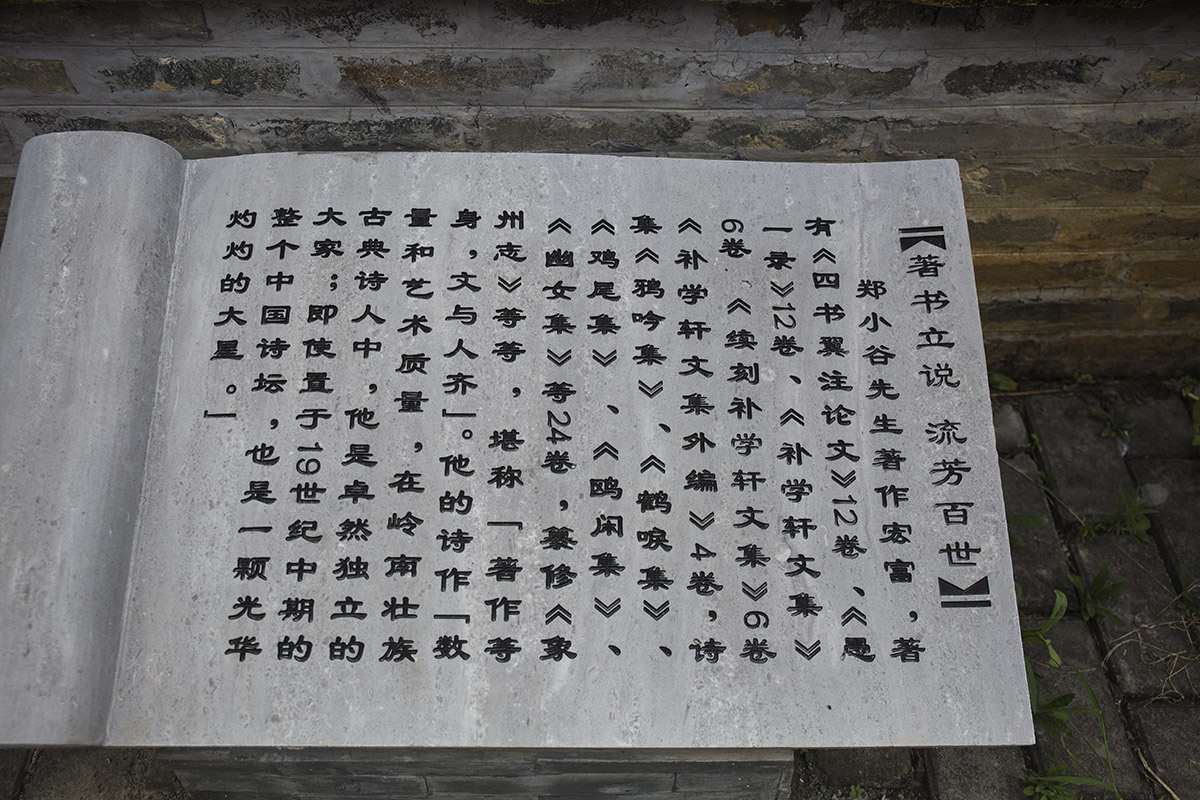 【著书立说 流芳百世】
郑小谷先生著作宏富，著
有《四书翼注论文》12卷、《愚
一录》12卷、《补学轩文集》
6卷 《续刻补学轩文集》6卷
《补学轩文集外编》4卷，诗
集《鸦吟集》、《鹤唳集》、
《鸡尾集》、《鸥闲集》、
《幽女集》等24卷，纂修《象
州志》等等，堪称「著作等
身，文与人齐」。他的诗作「数
量和艺术质量，在岭南壮族
古典诗人中，他是卓然独立的
大家；即使置于19世纪中期的
整个中国诗坛，也是一颗光华
灼灼的大星。」